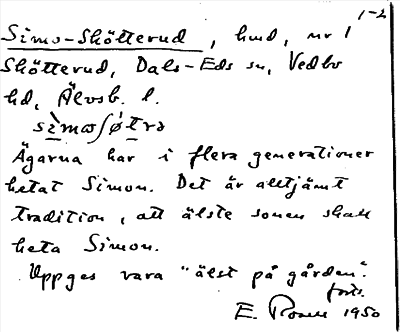 1-2
Simo-Skötterud, hmd, nr 1
Skötterud, Dals-Eds sn, Vedbo
hd, Älvsb. l.
Ägarna har i flera generationer
hetat Simon. Det är alltjämt
tradition, att älste sonen skall
heta Simon.
Uppges vara "älst på gården".
forts.
E. 1950